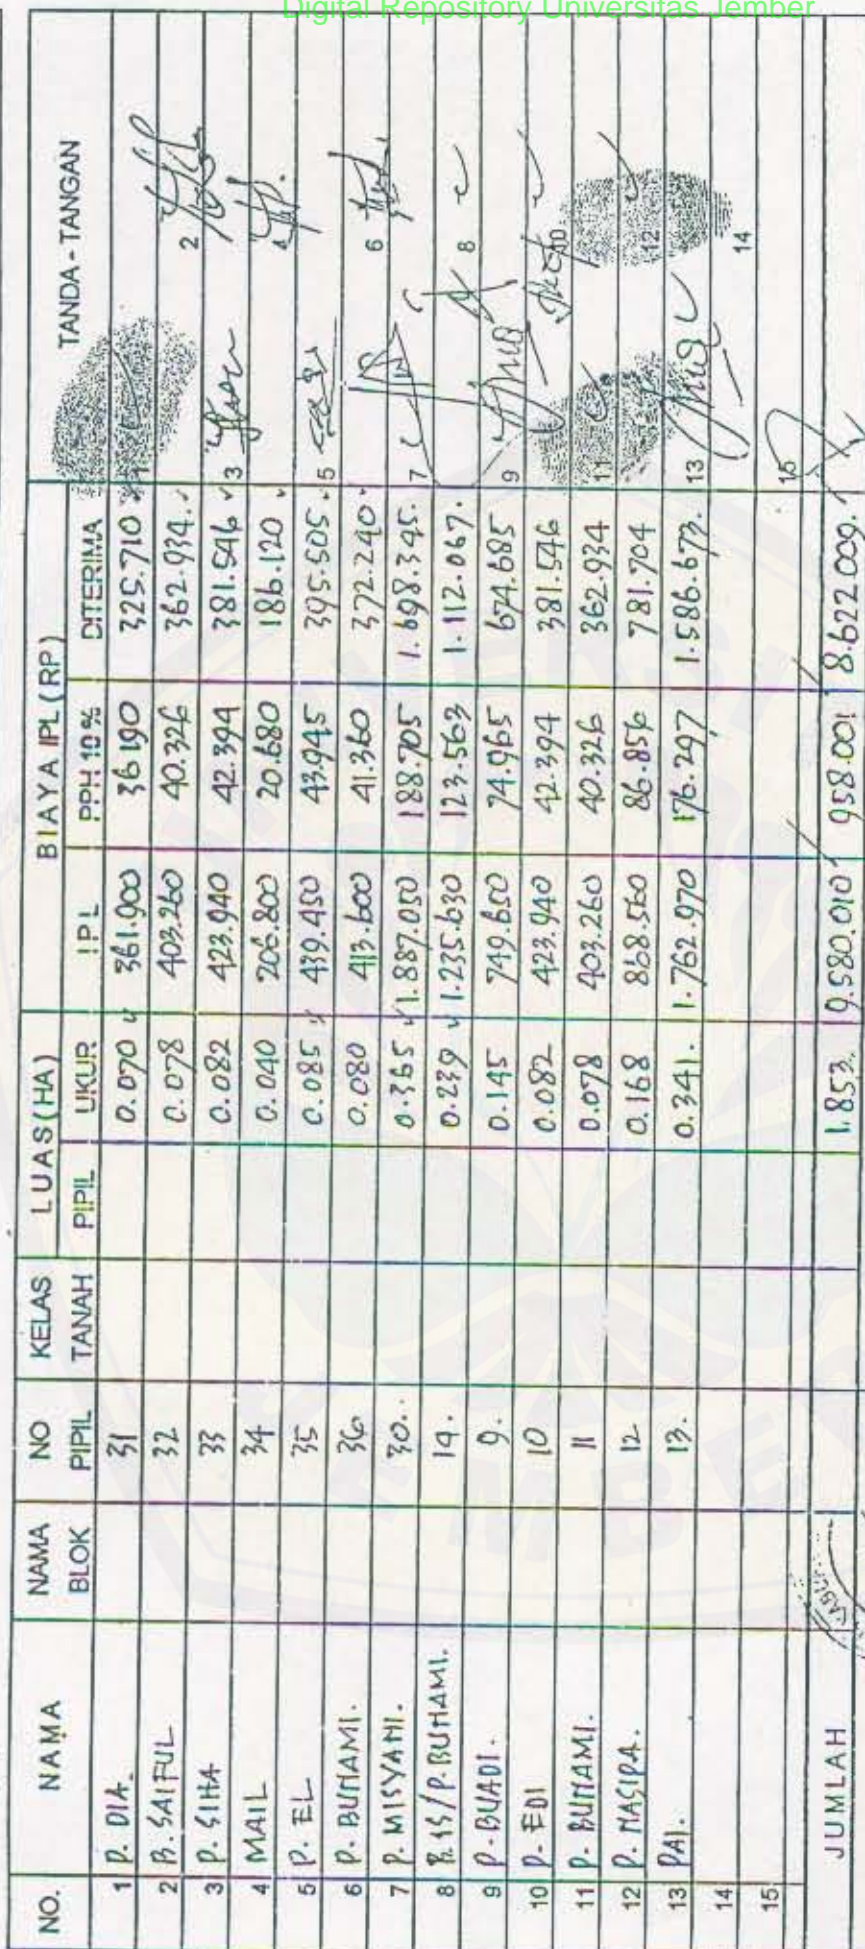 Digital Repository Universitas Jember
NO. NAMA NAMA BLOK NO PIPIL KELAS TANAH LUAS (HA) BIAYA IPL (RP) TANDA - TANGAN
PIPIL UKUR IPL PPH 10 % DITERIMA
1 P. DIA. 31 0.070 361.900 36.190 325.710 1
2 B. SAIFUL 32 0.078 403.260 40.326 362.934. 2
3 P. SIHA 33 0.082 423.940 42.394 381.546 3
4 MAIL 34 0.040 206.800 20.680 186.120 4
5 P. EL 35 0.085 439.450 43.945 395.505. 5
6 P. BUHAMI. 36 0.080 413.600 41.360 372.240 6
7 P. MISYAHI. 30.. 0.365 1.887.050 188.705 1.698.345. 7
8 B. IS/P.BUHAMI. 14. 0.239 1.235.630 123.563 1.112.067. 8
9 P. BUADI. 9. 0.145 749.650 74.965 674.685 9
10 P. EDI 10 0.082 423.940 42.394 381.546 10
11 P. BUHAMI. 11 0.078 403.260 40.326 362.934 11
12 P. HASIPA. 12 0.168 868.560 86.856 781.704 12
13 PAI. 13. 0.341. 1.762.970 176.297 1.586.673. 13
14 14
15 15
JUMLAH 1.853. 9.580.010 958.001 8.622.009.